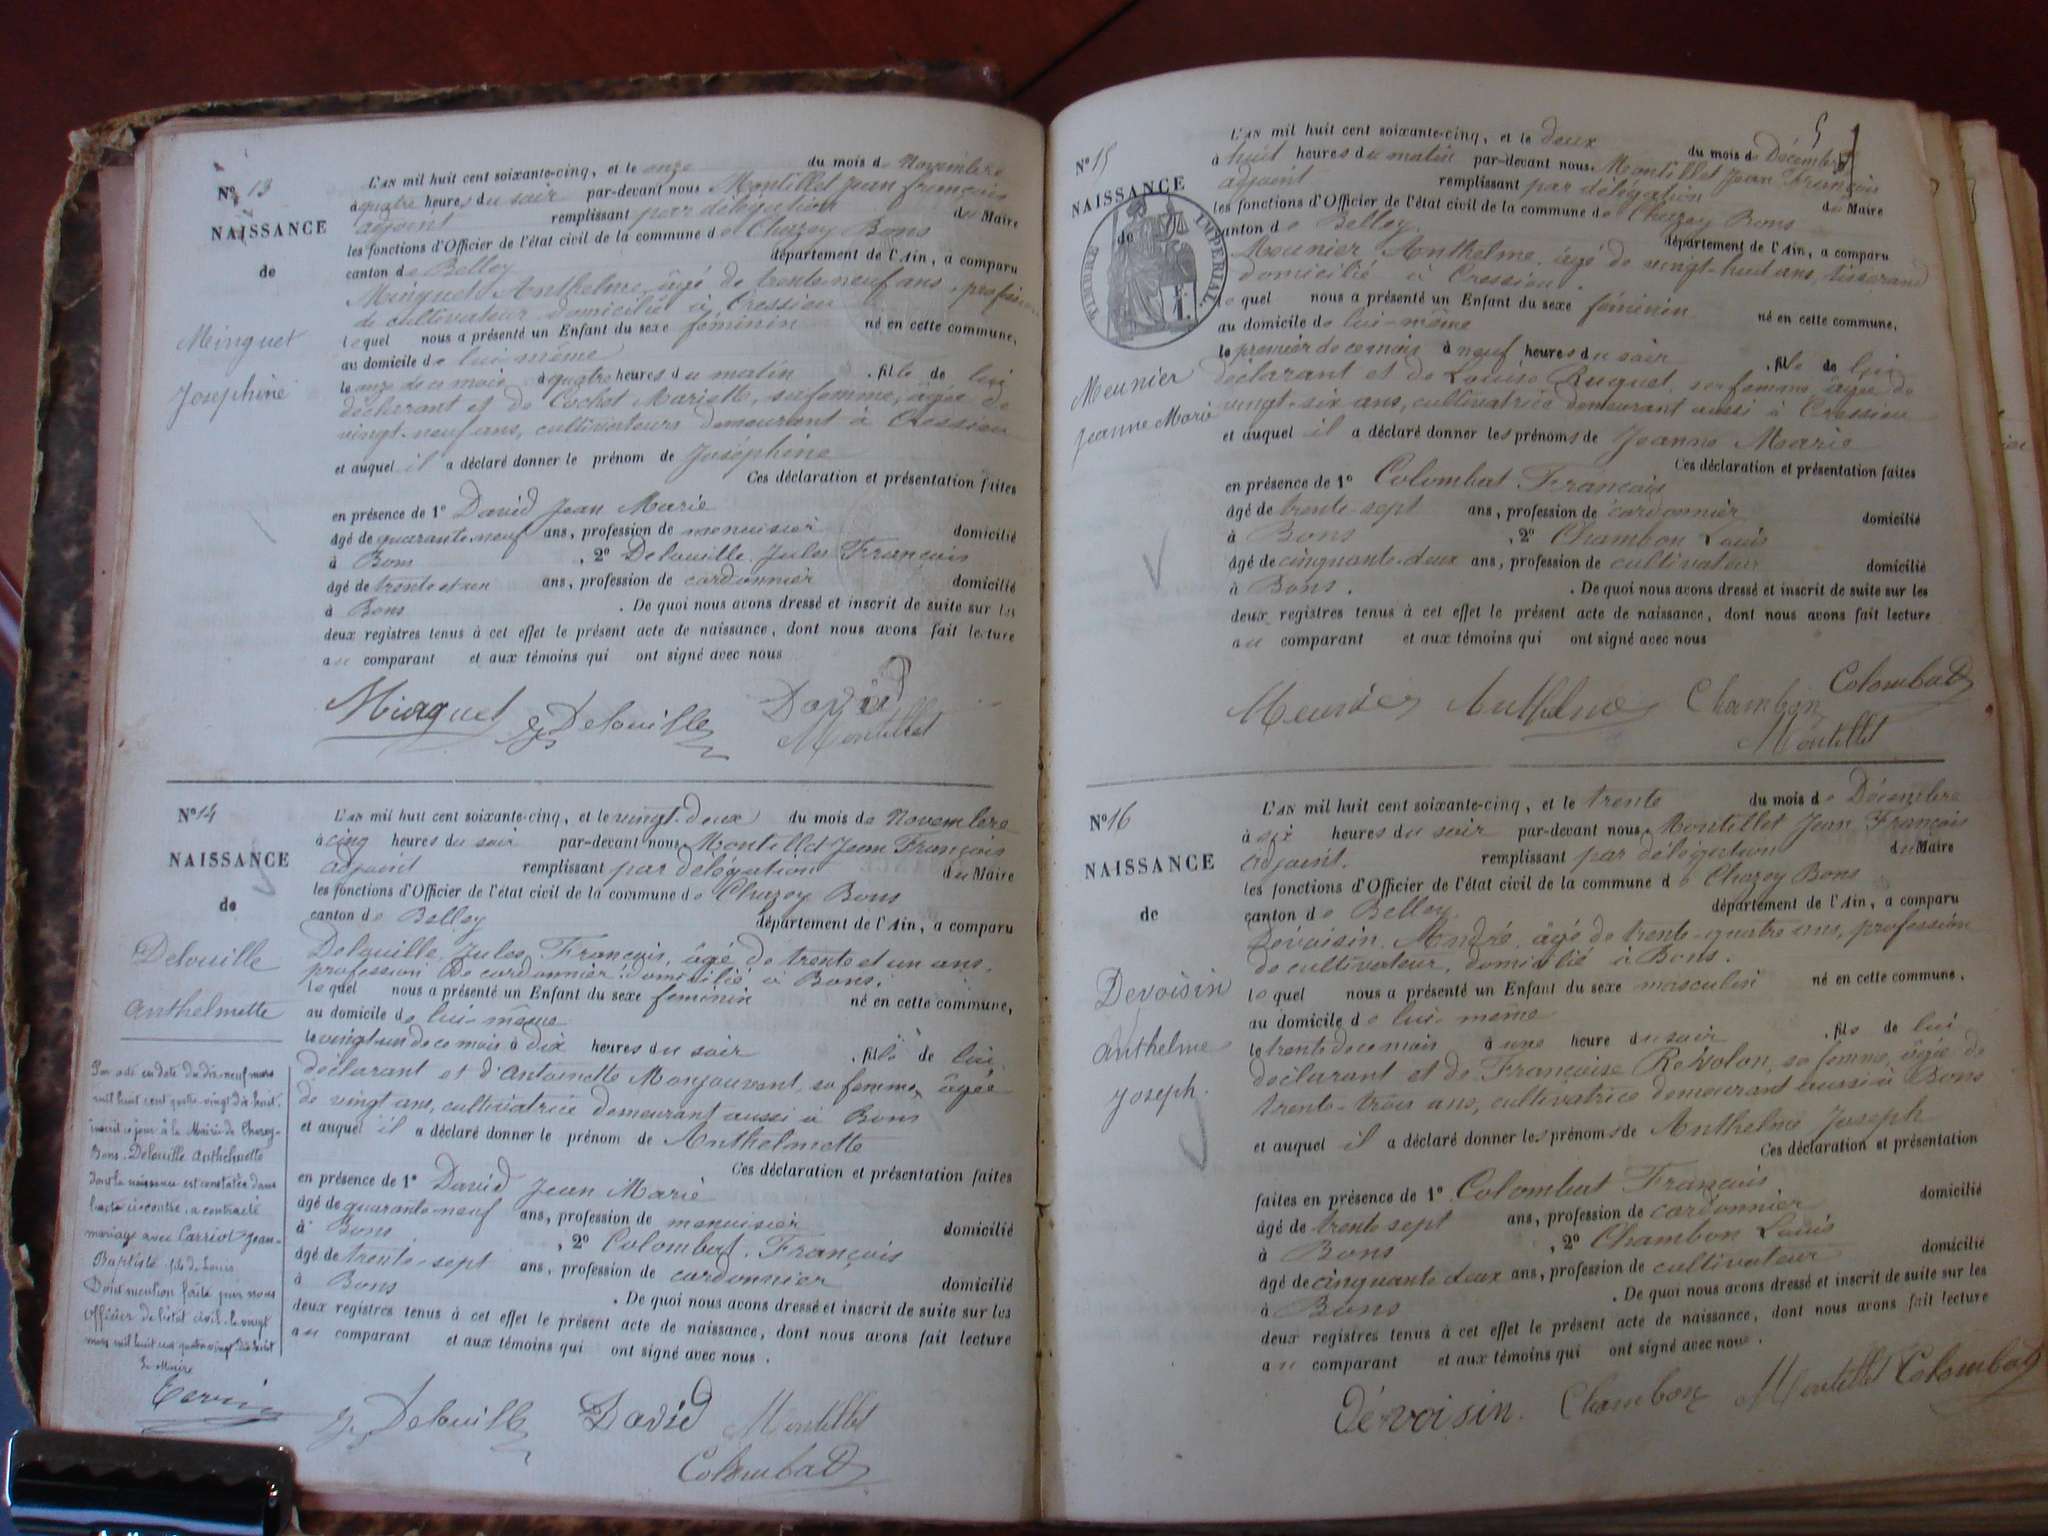 N° 13
NAISSANCE
de
Minguet
Joséphine
L'AN mil huit cent soixante-cinq, et le onze du mois de Novembre
à quatre heures du soir par-devant nous Montillet Jean françois
adjoint remplissant par délégation du Maire
les fonctions d'Officier de l'état civil de la commune de Chazey Bons
canton de Belley département de l'Ain, a comparu
Minguet Anthelme, âgé de trente-neuf ans, profession
de cultivateur domicilié à Cressieu
lequel nous a présenté un Enfant du sexe féminin né en cette commune,
au domicile de lui-même
le onze de ce mois à quatre heures du matin , fille de lui
déclarant et de Cochet Mariette, sa femme, âgée de
vingt-neuf ans, cultivateurs demeurant à Cressieu
et auquel il a déclaré donner le prénom de Joséphine
Ces déclaration et présentation faites
en présence de 1° David Jean Marie
âgé de quarante-neuf ans, profession de menuisier domicilié
à Bons , 2° Delouille Jules François
âgé de trente et un ans, profession de cordonnier domicilié
à Bons . De quoi nous avons dressé et inscrit de suite sur les
deux registres tenus à cet effet le présent acte de naissance, dont nous avons fait lecture
au comparant et aux témoins qui ont signé avec nous
Minguet J. Delouille David
Montillet
N° 14
NAISSANCE
de
Delouille
Anthelmette
Par acte en date du dix-neuf mars
mil huit cent quatre-vingt dix-huit,
inscrit ce jour à la Mairie de Chazey-
Bons, Delouille Anthelmette
dont la naissance est constatée dans
l'acte ci-contre, a contracté
mariage avec Carriot Jean-
Baptiste fils de Louis
Dont mention faite par nous
Officier de l'état civil, le vingt
mars mil huit cent quatre vingt dix huit
Le Maire
L'AN mil huit cent soixante-cinq, et le vingt-deux du mois de Novembre
à cinq heures du soir par-devant nous Montillet Jean François
adjoint remplissant par délégation du Maire
les fonctions d'Officier de l'état civil de la commune de Chazey Bons
canton de Belley département de l'Ain, a comparu
Delouille, Jules, François, âgé de trente et un ans,
profession de cordonnier domicilié à Bons,
lequel nous a présenté un Enfant du sexe feminin né en cette commune,
au domicile de lui-même
le vingt-un de ce mois à dix heures du soir , fille de lui
déclarant et d'Antoinette Monjouvent, sa femme, âgée
de vingt ans, cultivatrice demeurant aussi à Bons
et auquel il a déclaré donner le prénom de Anthelmette
Ces déclaration et présentation faites
en présence de 1° David Jean Marie
âgé de quarante-neuf ans, profession de menuisier domicilié
à Bons , 2° Colombat, François
âgé de trente-sept ans, profession de cordonnier domicilié
à Bons . De quoi nous avons dressé et inscrit de suite sur les
deux registres tenus à cet effet le présent acte de naissance, dont nous avons fait lecture
au comparant et aux témoins qui ont signé avec nous .
J. Delouille David Montillet
Colombat
5
N° 15
NAISSANCE
de
TIMBRE IMPERIAL
Meunier
Jeanne Marie
L'AN mil huit cent soixante-cinq, et le deux du mois de Décembre
à huit heures du matin par-devant nous Montillet Jean François
adjoint remplissant par délégation du Maire
les fonctions d'Officier de l'état civil de la commune de Chazey Bons
canton de Belley. département de l'Ain, a comparu
Meunier Anthelme, âgé de vingt-huit ans, tisserand
domicilié à Cressieu.
lequel nous a présenté un Enfant du sexe féminin né en cette commune,
au domicile de lui-même
le premier de ce mois à neuf heures du soir , fille de lui
déclarant et de Louise Ruguet, sa femme âgée de
vingt-six ans, cultivatrice demeurant aussi à Cressieu
et auquel il a déclaré donner les prénoms de Jeanne Marie
Ces déclaration et présentation faites
en présence de 1° Colombat François
âgé de trente-sept ans, profession de cordonnier domicilié
à Bons , 2° Chambon Louis
âgé de cinquante-deux ans, profession de cultivateur domicilié
à Bons . . De quoi nous avons dressé et inscrit de suite sur les
deux registres tenus à cet effet le présent acte de naissance, dont nous avons fait lecture
au comparant et aux témoins qui ont signé avec nous
Meunier Anthelme Chambon Colombat
Montillet
N° 16
NAISSANCE
de
Devoisin
Anthelme
Joseph.
L'AN mil huit cent soixante-cinq, et le trente du mois de Décembre
à six heures du soir par-devant nous Montillet Jean François
adjoint. remplissant par délégation du Maire
les fonctions d'Officier de l'état civil de la commune de Chazey Bons
canton de Belley département de l'Ain, a comparu
Devoisin, André, âgé de trente-quatre ans, profession
de cultivateur, domicilié à Bons.
lequel nous a présenté un Enfant du sexe masculin né en cette commune,
au domicile de lui-même
le trente de ce mois à une heure du soir , fils de lui
déclarant et de Françoise Révolon, sa femme, âgée de
trente-trois ans, cultivatrice demeurant aussi à Bons
et auquel il a déclaré donner les prénoms de Anthelme Joseph
Ces déclaration et présentation
faites en présence de 1° Colombat François
âgé de trente sept ans, profession de cordonnier domicilié
à Bons , 2° Chambon Louis
âgé de cinquante deux ans, profession de cultivateur domicilié
à Bons . De quoi nous avons dressé et inscrit de suite sur les
deux registres tenus à cet effet le présent acte de naissance, dont nous avons fait lecture
au comparant et aux témoins qui ont signé avec nous .
Dévoisin. Chambon Montillet Colombat